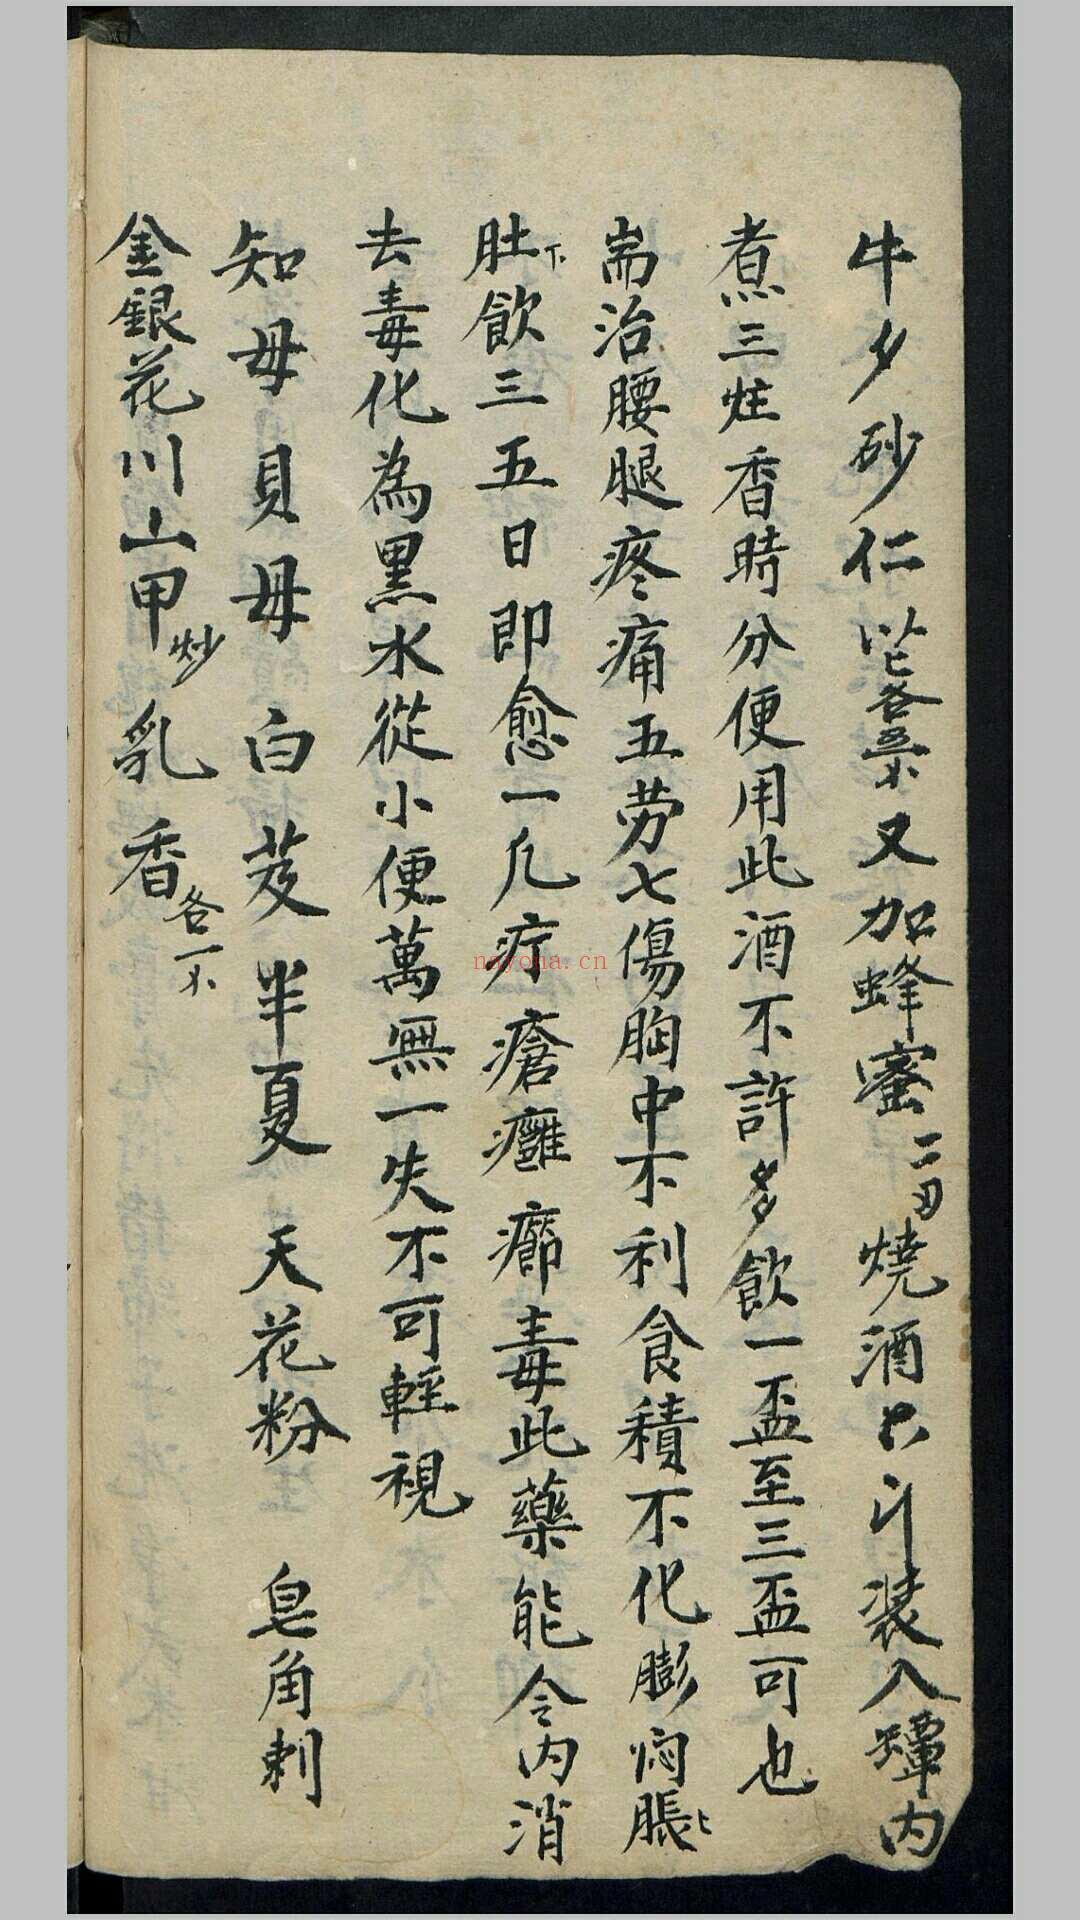 牛夕砂仁以上各五錢又加蜂蜜二刃燒酒六斤装入罈内
煮三炷香時分便用此酒不許多飲一盃至三盃可也
耑治腰腿疼痛五劳七傷胸中不利食積不化膨悶脹
肚飲三五日即愈一凢疔瘡癰癤毒此藥能令内消
去毒化為黑水從小便萬無一失不可輕視
知母貝母白芨半夏天花粉皂角刺
金銀花川山甲炒乳香各一錢
nayona.cn